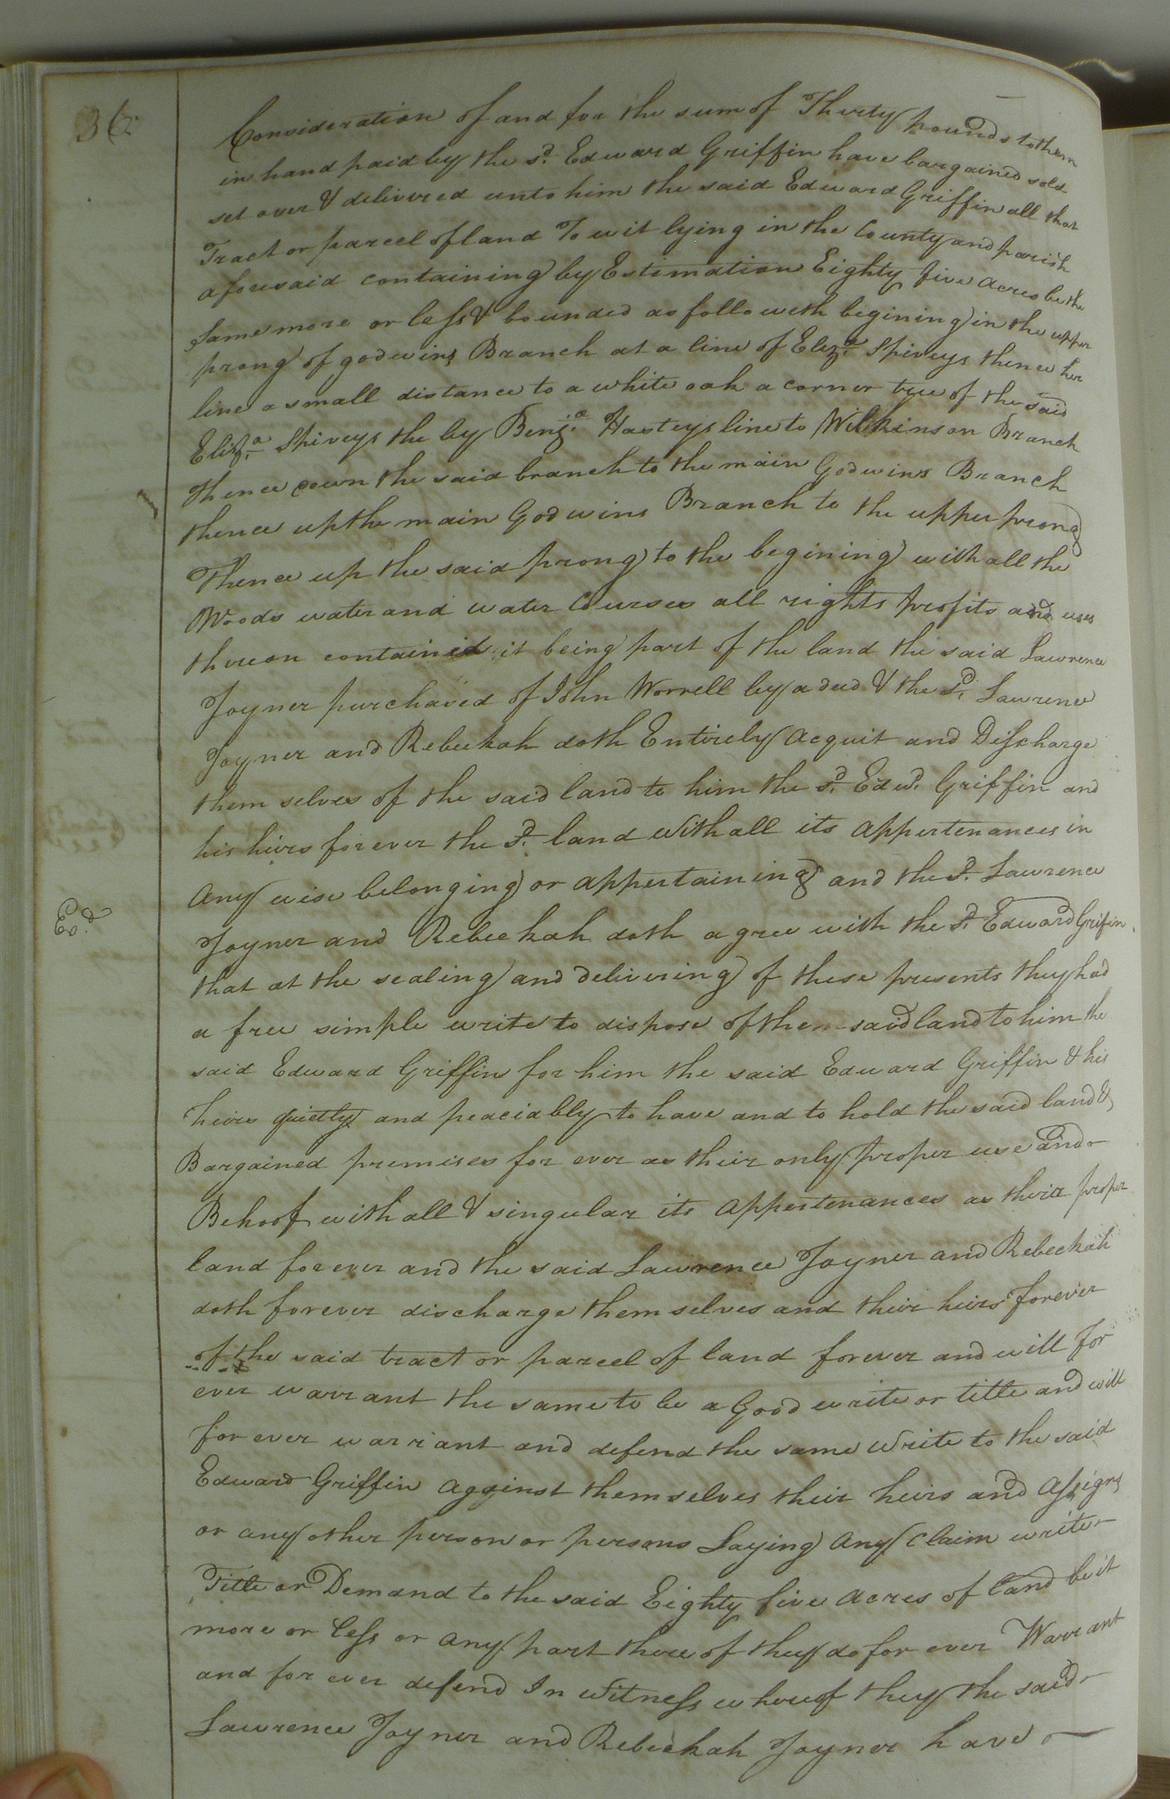 36
Consideration of and for the sum of Therty pounds to them
in hand paid by the sd. Edward Griffin have bargained sold
set over & delivered unto him the said Edward Griffin all that
Tract or parcel of land To wit lying in the County and parish
aforesaid containing by Estimation Eighty five acres be the
same more or less & bounded as followeth begining in the upper
prong of godwins Branch at a line of Eliza. Spiveys thence her
line a small distance to a white oak a corner tree of the said
Eliza. Spiveys the by Benja. Hasteys line to Wilkinson Branch
thence down the said branch to the main Godwins Branch
thence up the main Godwins Branch to the upper prong
Thence up the said prong to the begining with all the
Woods water and water Courses all rights profits and uses
thereon contained it being part of the land the said Lawrence
Joyner purchased of John Worrell by a deed & the sd. Lawrence
Joyner and Rebeckah doth Entirely acquit and Discharge
them selves of the said land to him the sd. Edwd. Griffin and
his heirs forever the sd. land with all its appertenances in
any wise belonging or appertaining and the sd. Lawrence
Exd.
Joyner and Rebeckah doth agree with the sd. Edward Grifin
that at the sealing and delivering of these presents they had
a free simple write to dispose of the said land to him the
said Edward Griffin for him the said Edward Griffin & his
heirs quietly and peaciably to have and to hold the said land &
Bargained premises for ever as their only proper use and
Behoof with all & singular its appertenances as their proper
land forever and the said Lawrence Joyner and Rebeckah
doth forever discharge them selves and their heirs forever
of the said tract or parcel of land forever and will for
ever warrant the same to be a Good write or title and will
for ever warrant and defend the same write to the said
Edward Griffin against themselves their heirs and assigns
or any other person or persons Laying any claim write
Title or Demand to the said Eighty five acres of land be it
more or less or any part there of they do for ever Warrant
and for ever defend In witness whereof they the said
Lawrence Joyner and Rebeckah Joyner have